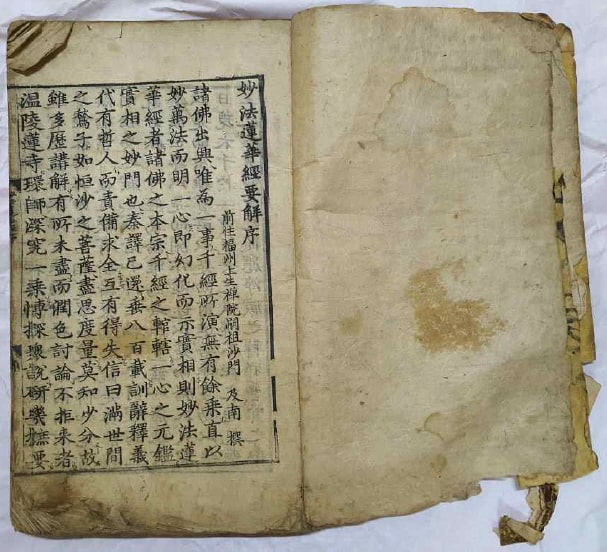 妙法蓮華經要解序
前住福州上生禅院嗣祖沙門 及南 撰
諸佛出興唯為一事千經所演無有餘乗直以
妙萬法而明一心即幻化而示實相則妙法蓮
華經者諸佛之本宗千經之輨轄一心之元鑑
實相之妙門也秦譯已還垂八百載訓辭釋義
代有哲人而責備求全互有得失信曰滿世間
之鶖子如恒沙之菩薩盡思度量莫知少分故
雖多歷講解有所未盡而潤色討論不拒来者
温陵蓮寺環師深究一乗愽探衆說研幾摭要